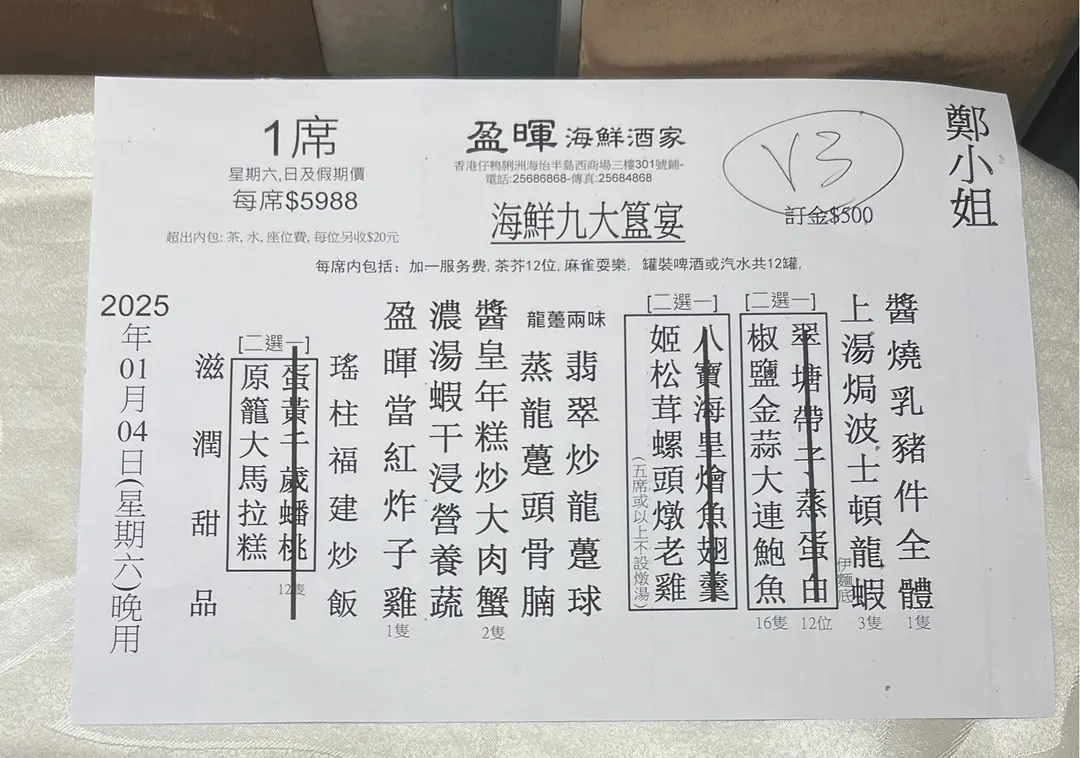 鄭小姐
1席
星期六,日及假期價
每席$5988
超出內包: 茶, 水, 座位費, 每位另收$20元
盈暉海鮮酒家
香港仔鴨脷洲海怡半島西商場三樓301號鋪-
電話:25686868-傳真:25684868
海鮮九大簋宴
V3
訂金$500
每席内包括：加一服务费, 茶芥12位, 麻雀耍樂, 罐裝啤酒或汽水共12罐,
醬燒乳豬件全體
1隻
上湯焗波士頓龍蝦
伊麵底
3隻
[二選一]
翠塘帶子、蒸蛋白
12位
椒鹽金蒜大連鮑魚
16隻
[二選一]
八寶海皇燴魚翅羹
姬松茸螺頭燉老雞
(五席或以上不設燉湯)
龍躉兩味
翡翠炒龍躉球
蒸龍躉頭骨腩
醬皇年糕炒大肉蟹
2隻
濃湯蝦干浸營養蔬
盈暉當紅炸子雞
1隻
瑤柱福建炒飯
[二選一]
蛋黃千歲蟠桃
12隻
原籠大馬拉糕
滋潤甜品
2025年01月04日(星期六)晚用